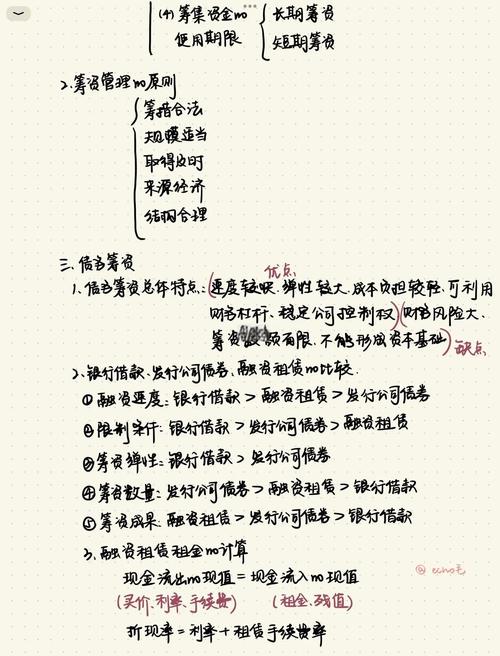 (4)筹集资金的 { 长期筹资
使用期限 短期筹资
2.筹资管理的原则
筹措合法
规模适当
取得及时
来源经济
结构合理
三.债务筹资
优点
1.债务筹资总体特点:(速度较快.弹性较大.成本负担较轻.可利用
财务杠杆、稳定公司控制权)(财务风险大、
筹资数额有限.不能形成资本基础)缺点
2.银行借款、发行公司债券、融资租赁的比较.
①融资速度:银行借款>融资租赁>发行公司债券
②限制条件:银行借款>发行公司债券>融资租赁
③筹资弹性:银行借款>发行公司债券
④筹资数量:发行公司债券>融资租赁>银行借款
⑤筹资成果:融资租赁>发行公司债券>银行借款
3.融资租赁租金的计算
现金流出的现值=现金流入的现值
@echo毛
(买价、利率、手续费) (租金、残值)
折现率=利率+租赁手续费率